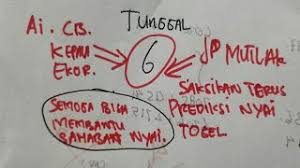 TUNGGAL
Ai. CB.
KEPALA
EKOR.
6
JP MUTLAK
SAKSIKAN TERUS
PREDIKSI NYAI
TOGEL
SEMOGA BISA
MEMBANTU
SAHABAT NYAI.